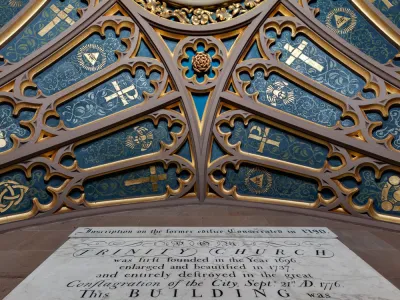 Inscription on the former edifice Consecrated in 1790
TRINITY CHURCH
was first founded in the Year 1696,
enlarged and beautified in 1737
and entirely destroyed in the great
Conflagration of the City, Sept. 21st A D 1776.
This BUILDING was